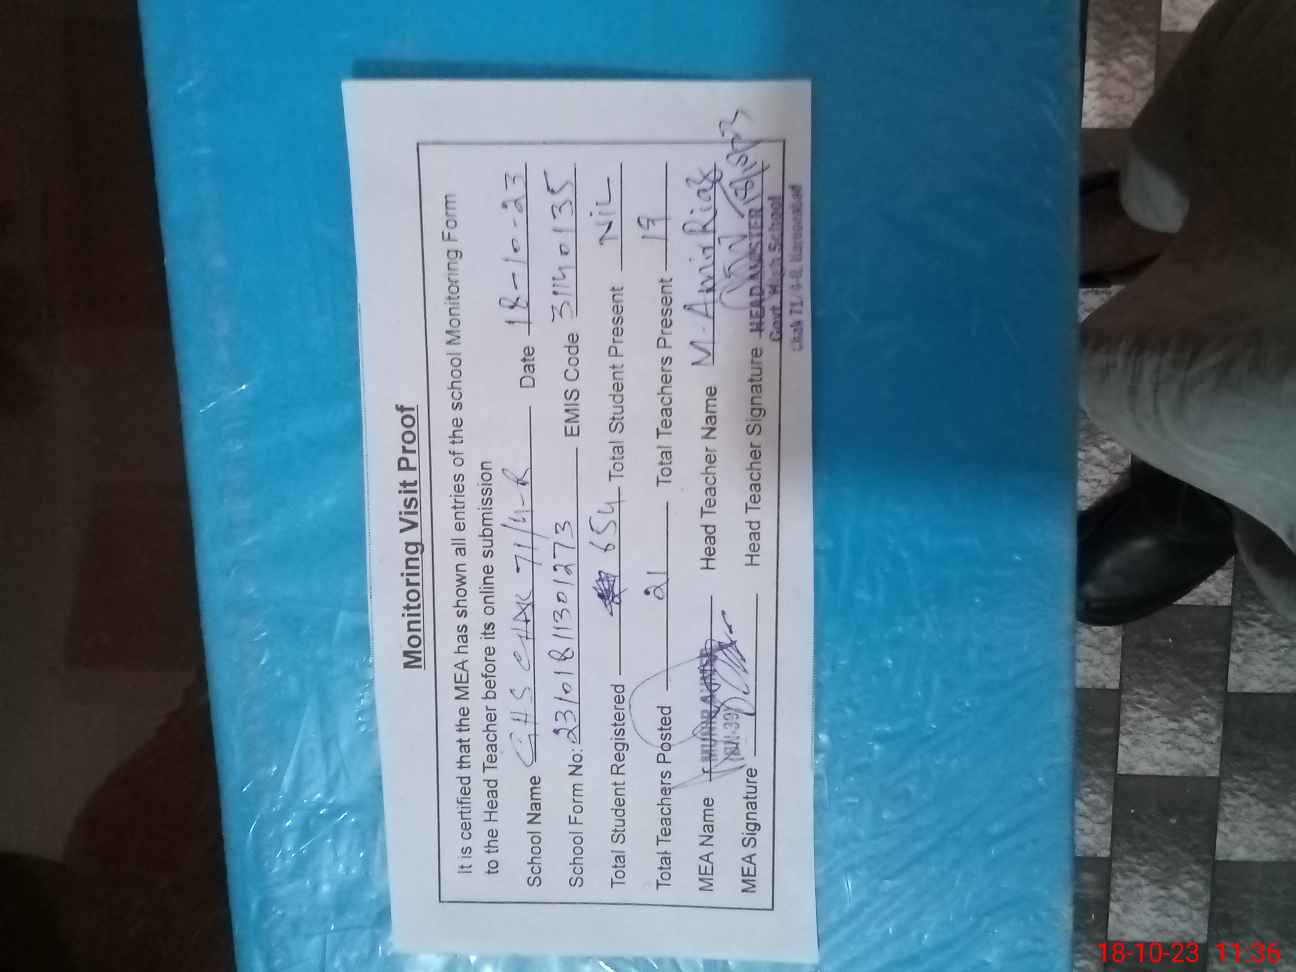 Monitoring Visit Proof
It is certified that the MEA has shown all entries of the school Monitoring Form
to the Head Teacher before its online submission
School Name GHS CHAK 71/4-R Date 18-10-23
School Form No: 23101811301273 EMIS Code 31140135
Total Student Registered 654 Total Student Present NiL
Total Teachers Posted 21 Total Teachers Present 19
MEA Name Head Teacher Name M. Amir Riaz
MEA Signature Head Teacher Signature HEADMASTER
Govt. High School
Chak 71/4-R Haroonabad
18-10-23 11:36